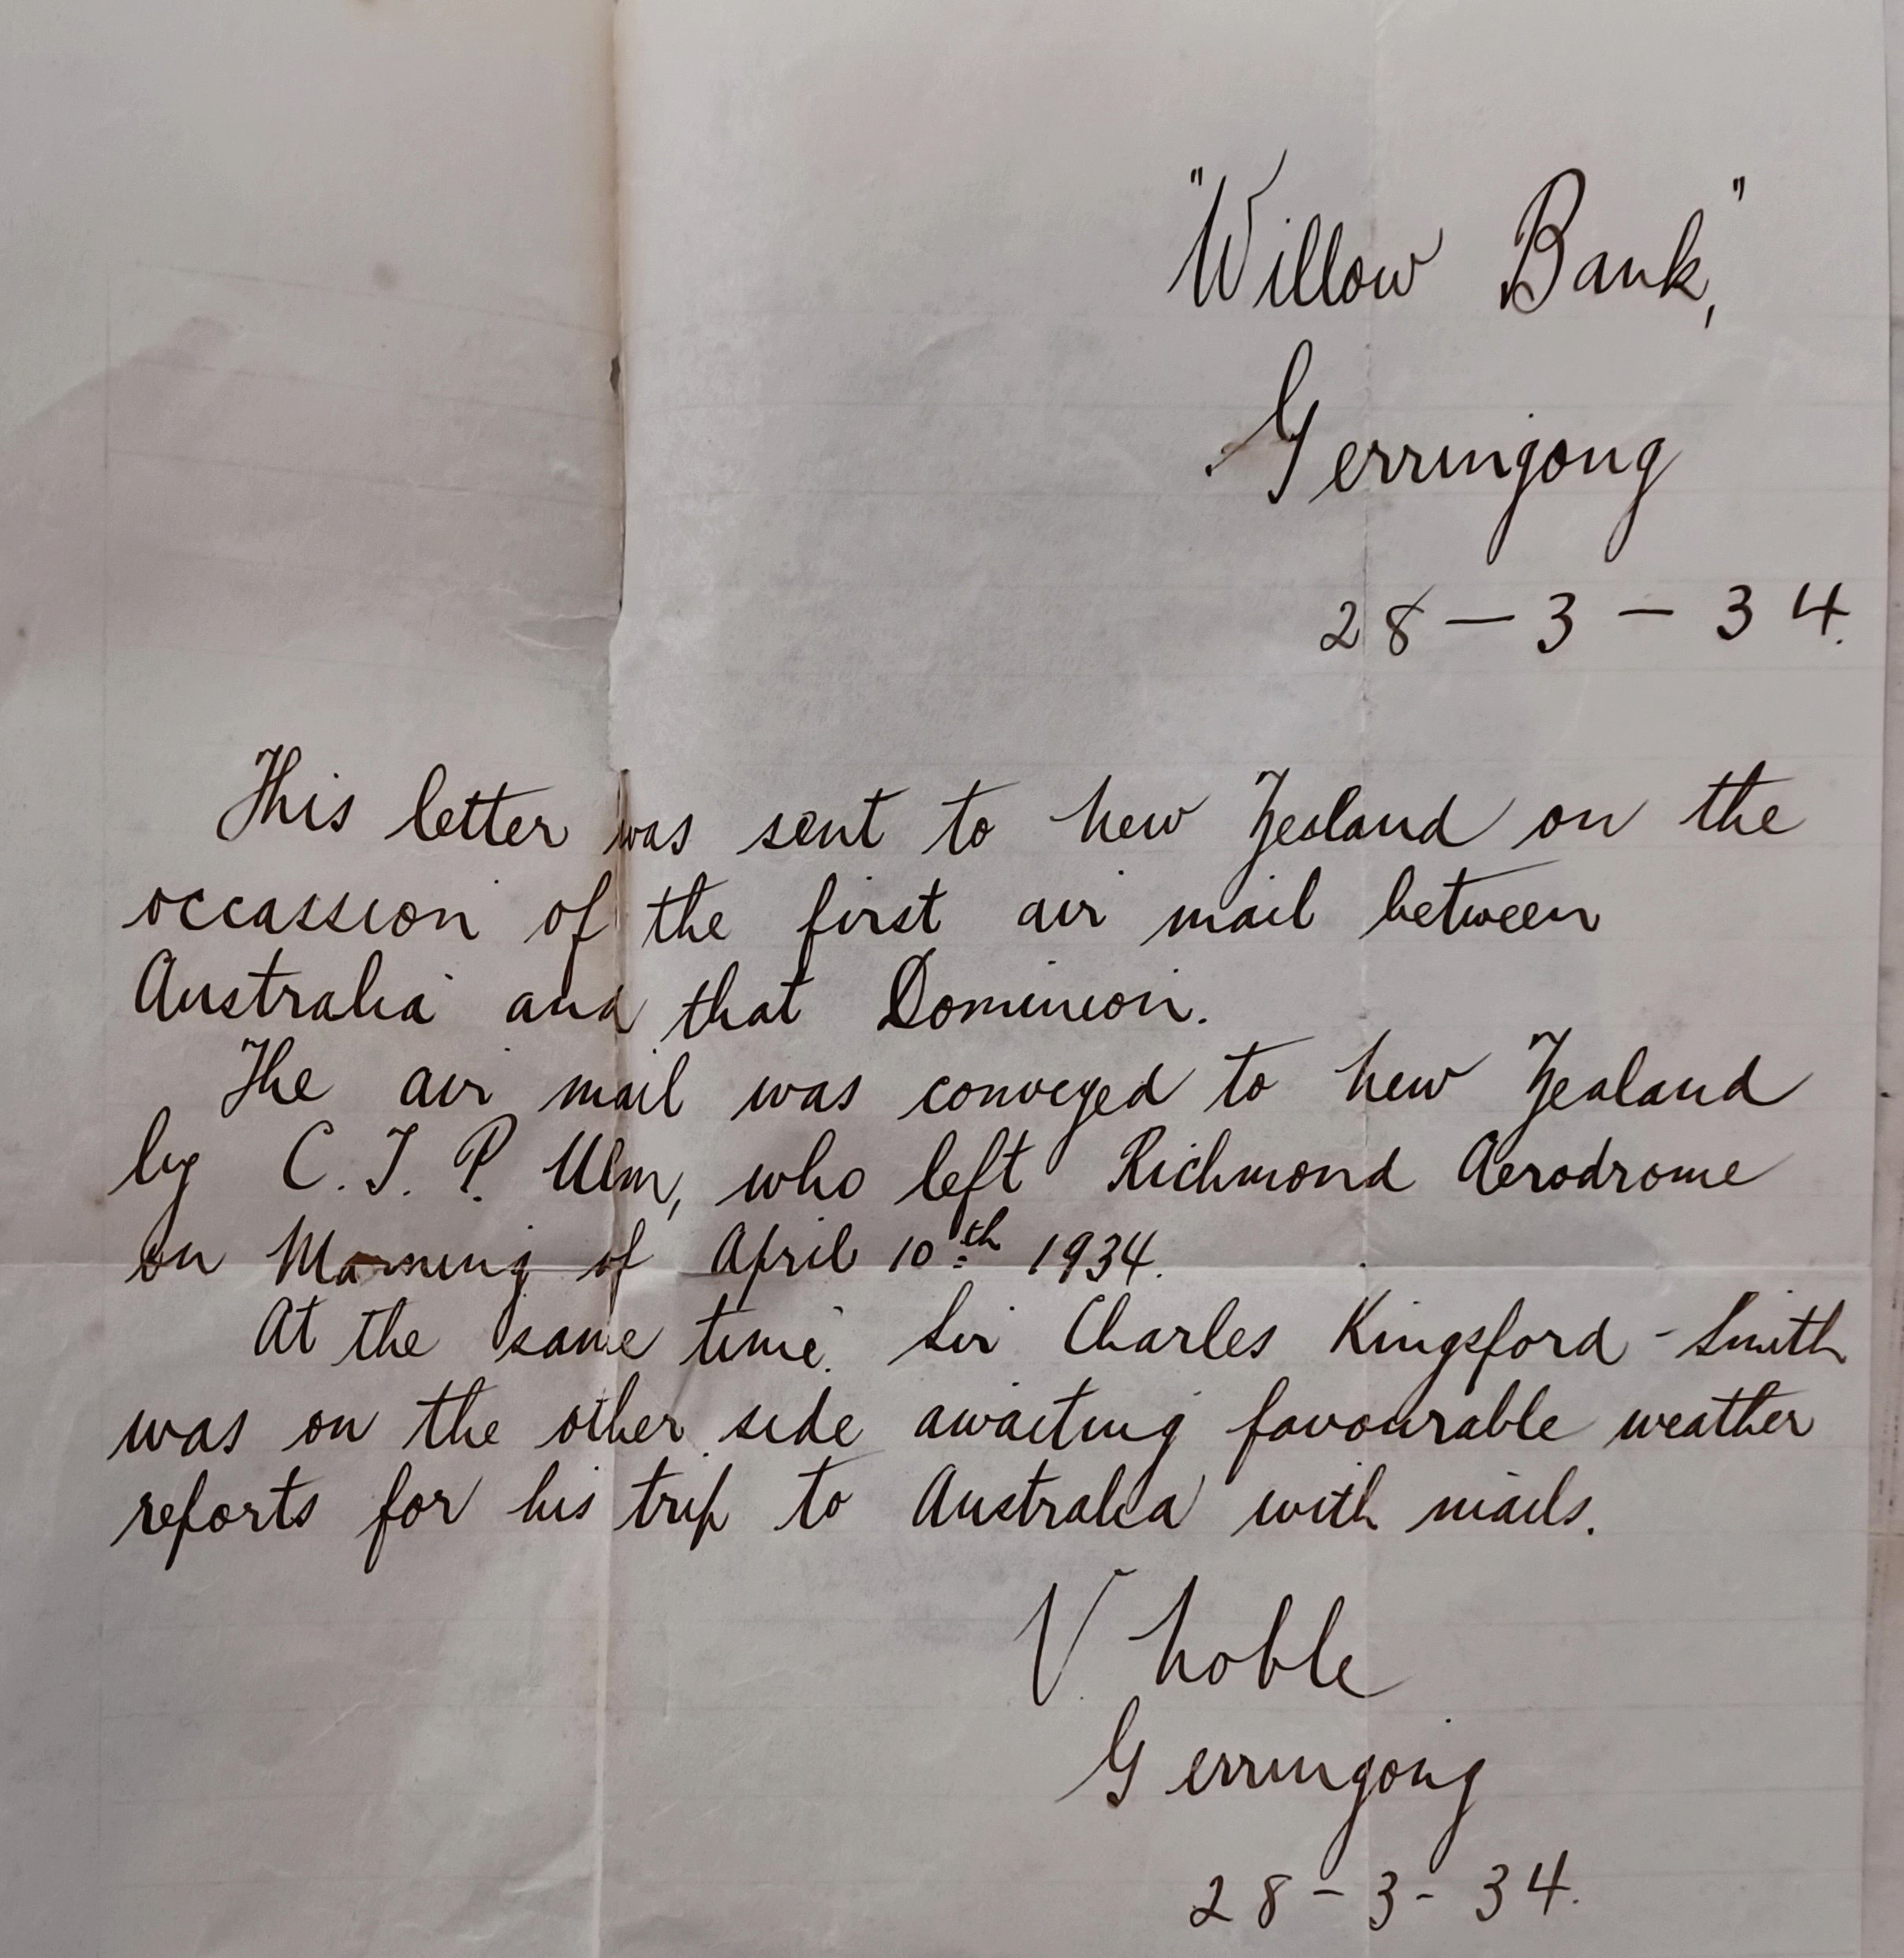 "Willow Bank,"
Gerringong
28 – 3 – 34.
This letter was sent to New Zealand on the
occassion of the first air mail between
Australia and that Dominion.
The air mail was conveyed to New Zealand
by C. T. P. Ulm, who left Richmond Aerodrome
on Morning of April 10th 1934.
At the same time. Sir Charles Kingsford-Smith
was on the other side awaiting favourable weather
reports for his trip to Australia with mails.
V Noble
Gerringong
28 – 3 - 34.